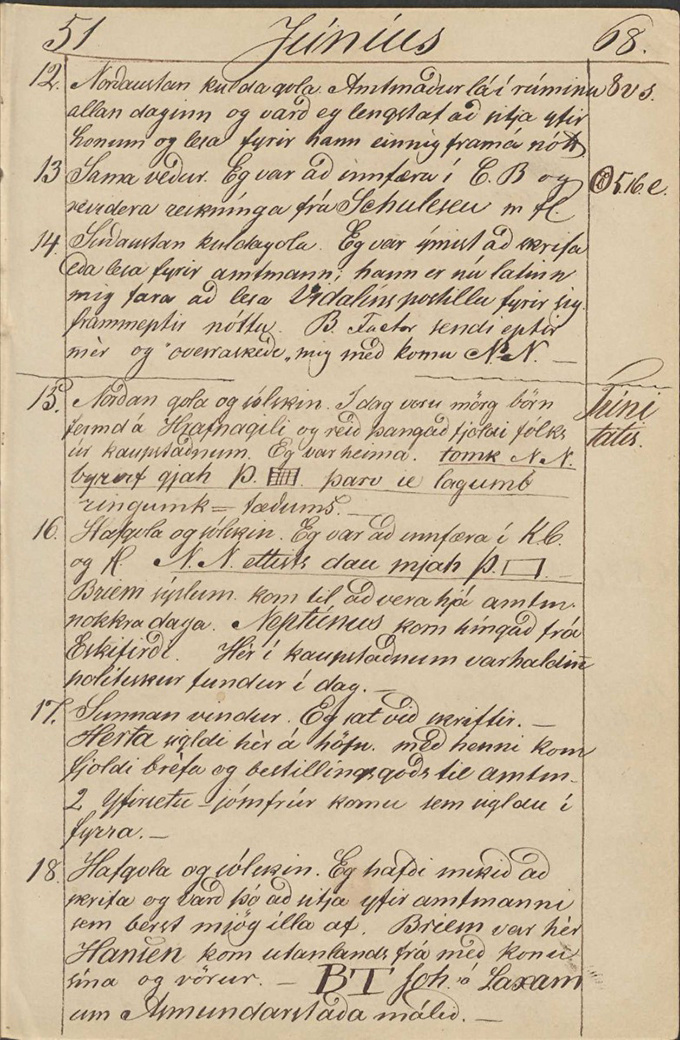 51 Júníus 68.
12. Nordaustan kulda gola. Amtmadur lá í rúminu 8 v s.
allan daginn og vard eg lengstaf ad sitja yfir
honum og lesa fyrir hann einnig framá nótt
13 Sama vedur. Eg var ad innfæra í C. B og 5.16.e.
revidera reikninga frá Schulesen m fl.
14. Sudaustan kuldagola. Eg var ýmist ad skrifa
eda lesa fyrir amtmann; hann er nú latinn
mig fara ad lesa Vidalíns postillu fyrir sig
frammeptir nóttu. B. Factor sendi eptir
mér og "overraskede" mig med komu N. N. —
15. Nordan gola og sólskin. I dag voru mörg börn Trini
fermd á Hrafnagili og reid þangad fjoldi folks tatis.
úr kaupstadnum. Eg var heima. tomk N. N.
gjah Þ. parv ie lagumb
ringumk = tædums. —
16. Hafgola og sólskin. Eg var ad innfæra í K.C.
og fl. N. N. ettists dau mjah Þ.
Briem sýslum. kom til ad vera hjá amtm.
nokkra daga. Neptúnus kom hingad frá
Eskifirdi. Hér í kaupstadnum var haldinn
politiskur fundur í dag. —
17. Sunnan vindur. Eg sat vid skriftir. —
Herta sigldi hér á höfn. med henni kom
fjoldi bréfa og bestillingsgóds til amtm—
2 Yfirsetu-jómfrúr komu sem sigldu í
fyrra. —
18. Hafgola og sólskin. Eg hafdi mikid ad
skrifa og vard þó ad sitja yfir amtmanni
sem berst mjög illa af. Briem var hér
Hansen kom utanlands frá med konu
sína og vörur. — BT Joh. á Laxam
um Asmundarstada málid. —